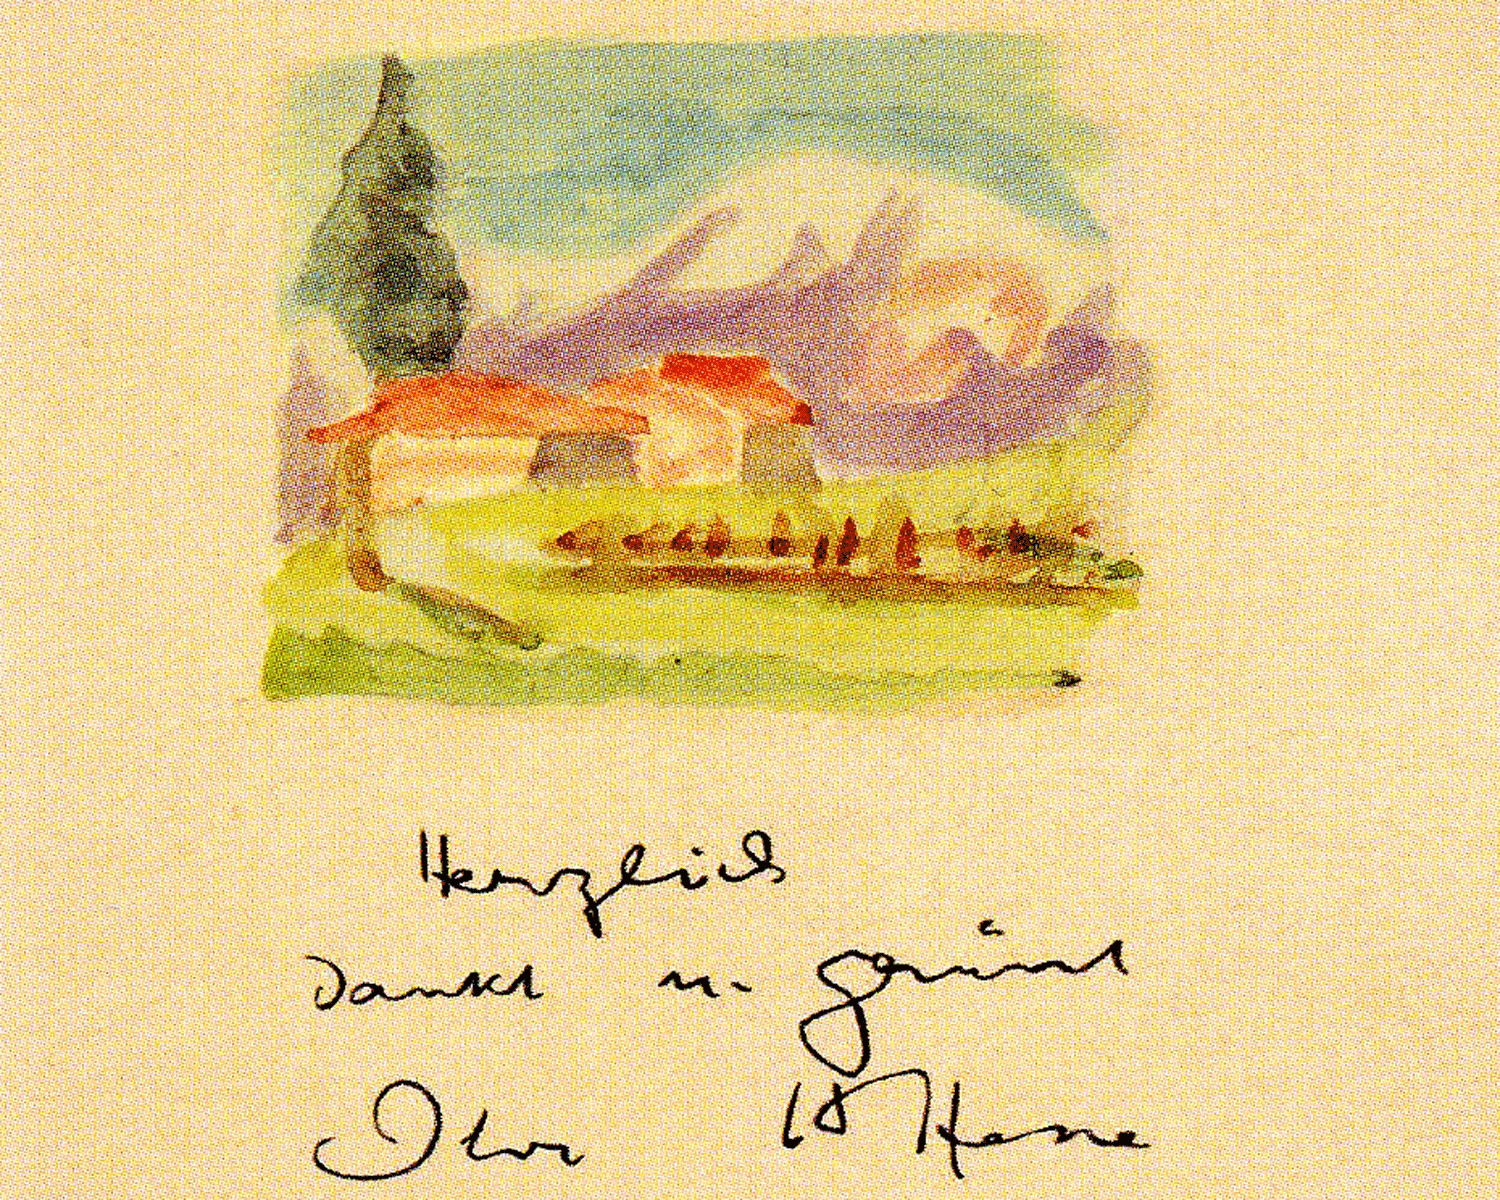 Herzlich
dankt u. grüsst
Ihr H Hesse